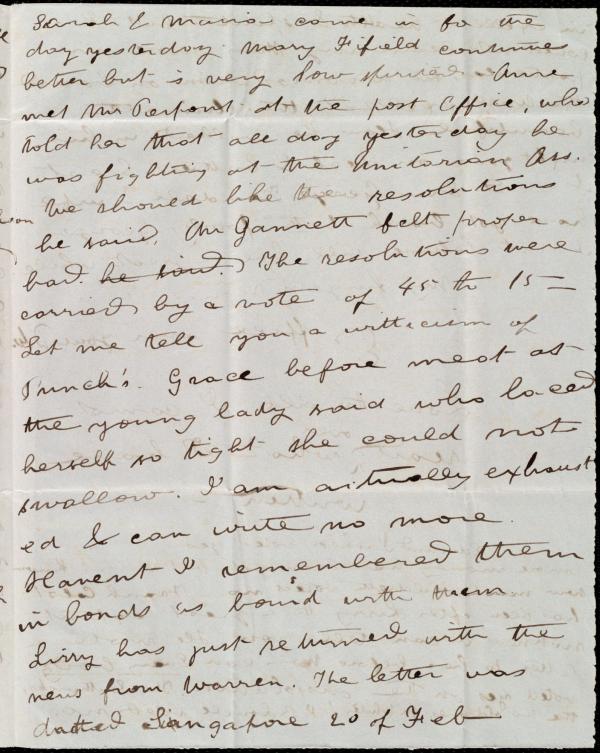 Sarah & Maria come in fo the
day yesterday. Mary Fifield continues
better but is very low spirited. Anne
met Mr Perpont at the post Office, who
told her that all day yesterday he
was fighting at the Unitarian Ass.
We should like the resolutions
he said, Mr Gannett felt proper
bad. he said. The resolutions were
carried by a vote of 45 to 15 —
Let me tell you a witticism of
Punch's. Grace before meat as
the young lady said who laced
herself so tight she could not
swallow. I am actually exhaust
ed & can write no more.
Havent I remembered them
in bonds as bound with them
Lizzy has just returned with the
news from Warren. The letter was
datted Singapore 20 of Feb